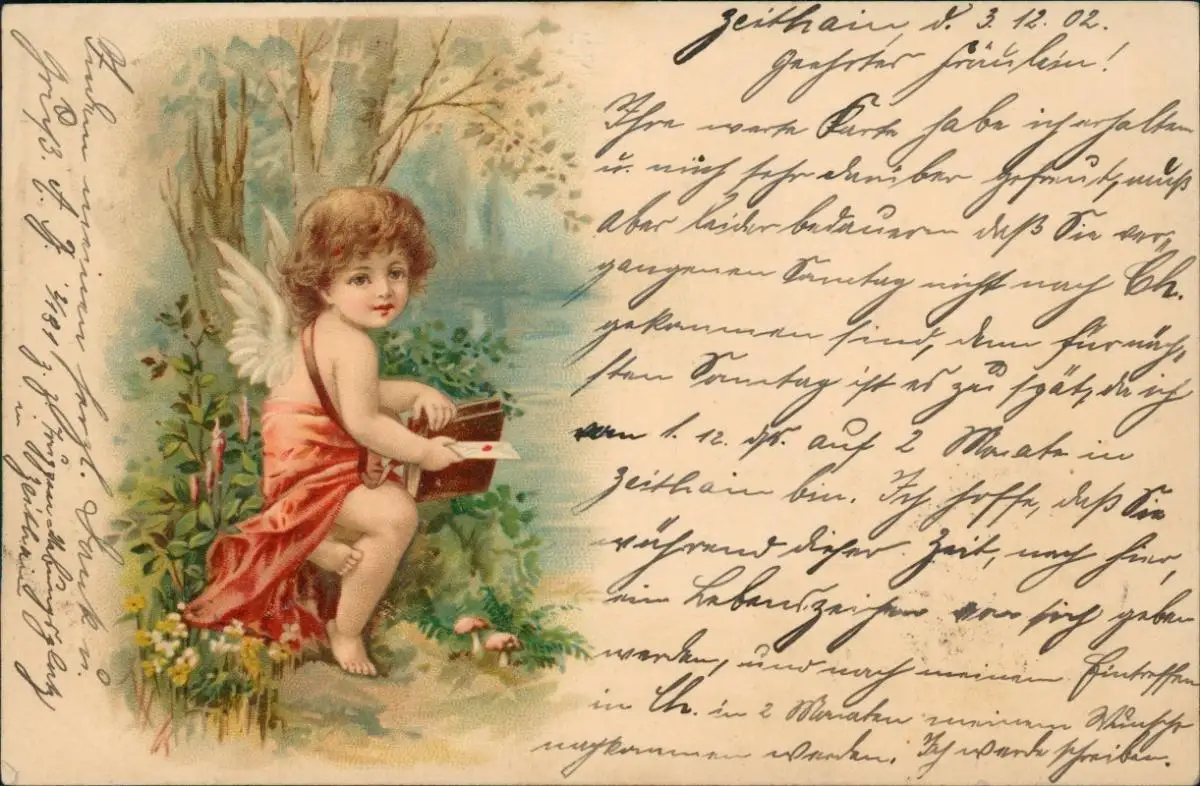 Zeithain, d. 3.12.02.
Geehrtes Fräulein!
Ihre werte Karte habe ich erhalten
u. mich sehr darüber gefreut, muß
aber leider bedauern daß Sie ver-
gangenen Sonntag nicht nach Ch.
gekommen sind, denn für näch-
sten Sonntag ist es zu spät, da ich
vom 1.12. ds. auf 2 Monate in
Zeithain bin. Ich hoffe, daß Sie
während dieser Zeit, nach hier,
ein Lebenszeichen von sich geben
werden, und nach meinem Eintreffen
in Ch. in 2 Monaten meinem Wunsche
nachkommen werden. Ich werde schreiben.
Indem meinen herzl. Dank u.
Gruß.
in Zeithain